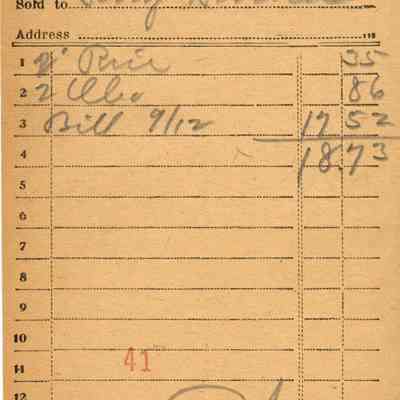 Sold to
Address 115
1 35
2 2 86
3 Bill 9/12 17 52
4 18.73
5
6
7
8
9
10
41
11
12